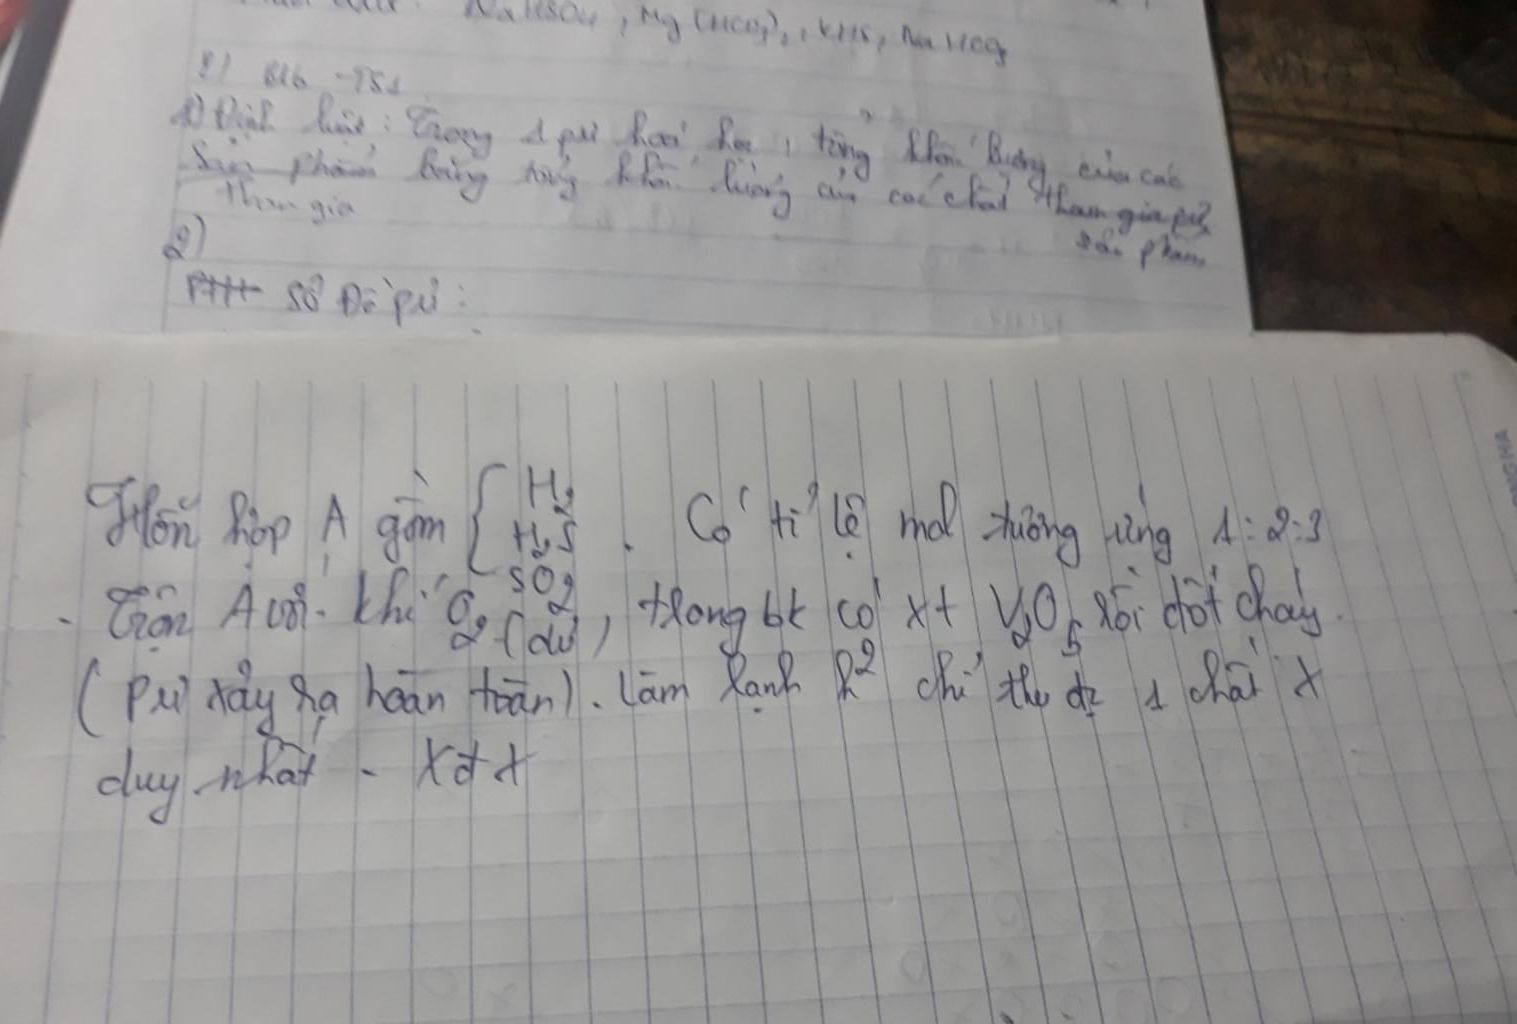 NaHSO4, Mg(HCO3)2, KHS, NaHCO3
8) B16 - T51
1) Định luật: Trong 1 pư hoá học, tổng khối lượng của các
sản phẩm bằng tổng khối lượng của các chất tham gia pứ
tham gia
sản phẩm
2)
PTHH Sơ Đồ pứ:
Hỗn hợp A gồm { H2 . Có tỉ lệ mol tương ứng 1:2:3
H2S
SO2
- Trộn A với khí O2 (dư), trong bk có xt V2O5 rồi đốt cháy.
(pứ xảy ra hoàn toàn). Làm lạnh h2 chỉ thu đc 1 chất X
duy nhất - Xđ X